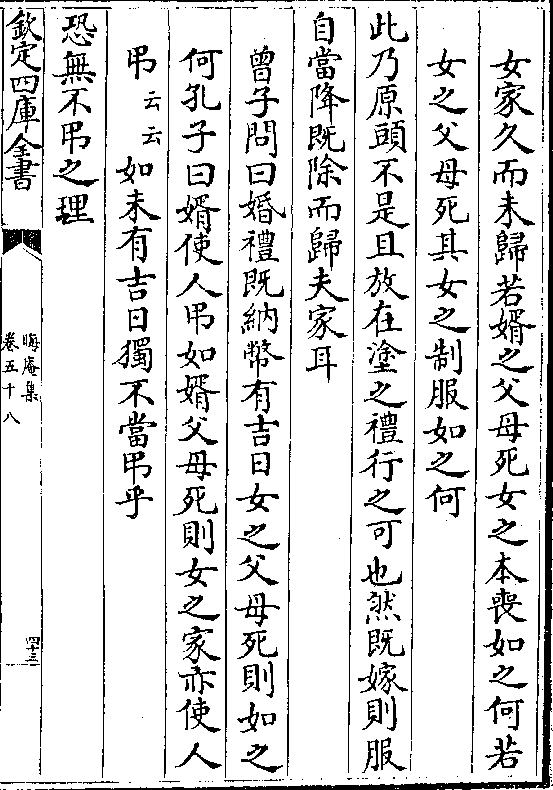 女家久而未歸若婿之父母死女之本喪如之何若
女之父母死其女之制服如之何
此乃原頭不是且放在塗之禮行之可也然既嫁則服
自當降既除而歸夫家耳
曾子問曰婚禮既納幣有吉日女之父母死則如之
何孔子曰婿使人弔如婿父母死則女之家亦使人
弔云云如未有吉日獨不當弔乎
恐無不弔之理
欽定四庫全書
晦庵集
卷五十八
四十三